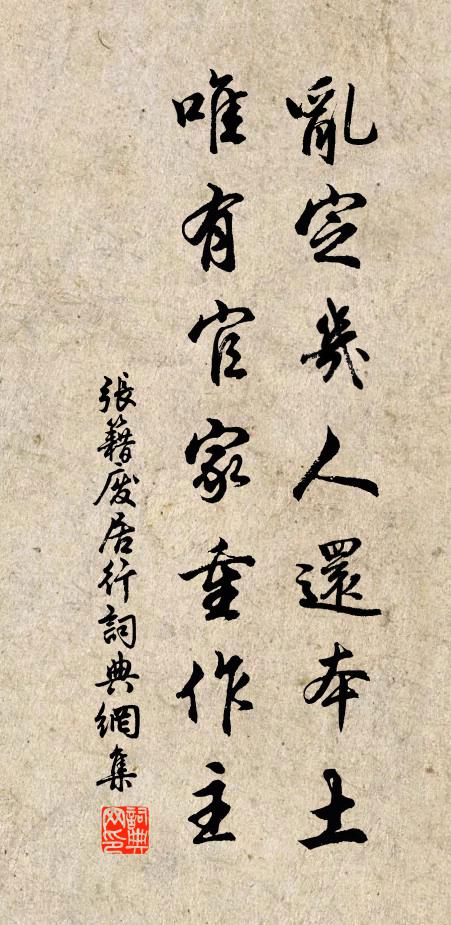 亂定幾人還本土
唯有官家重作主
張籍廢居行詞典網集
詞典網印